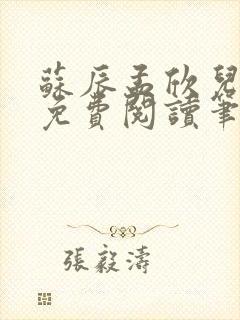 蘇辰孟欣兒
免費閱讀筆
張毅濤